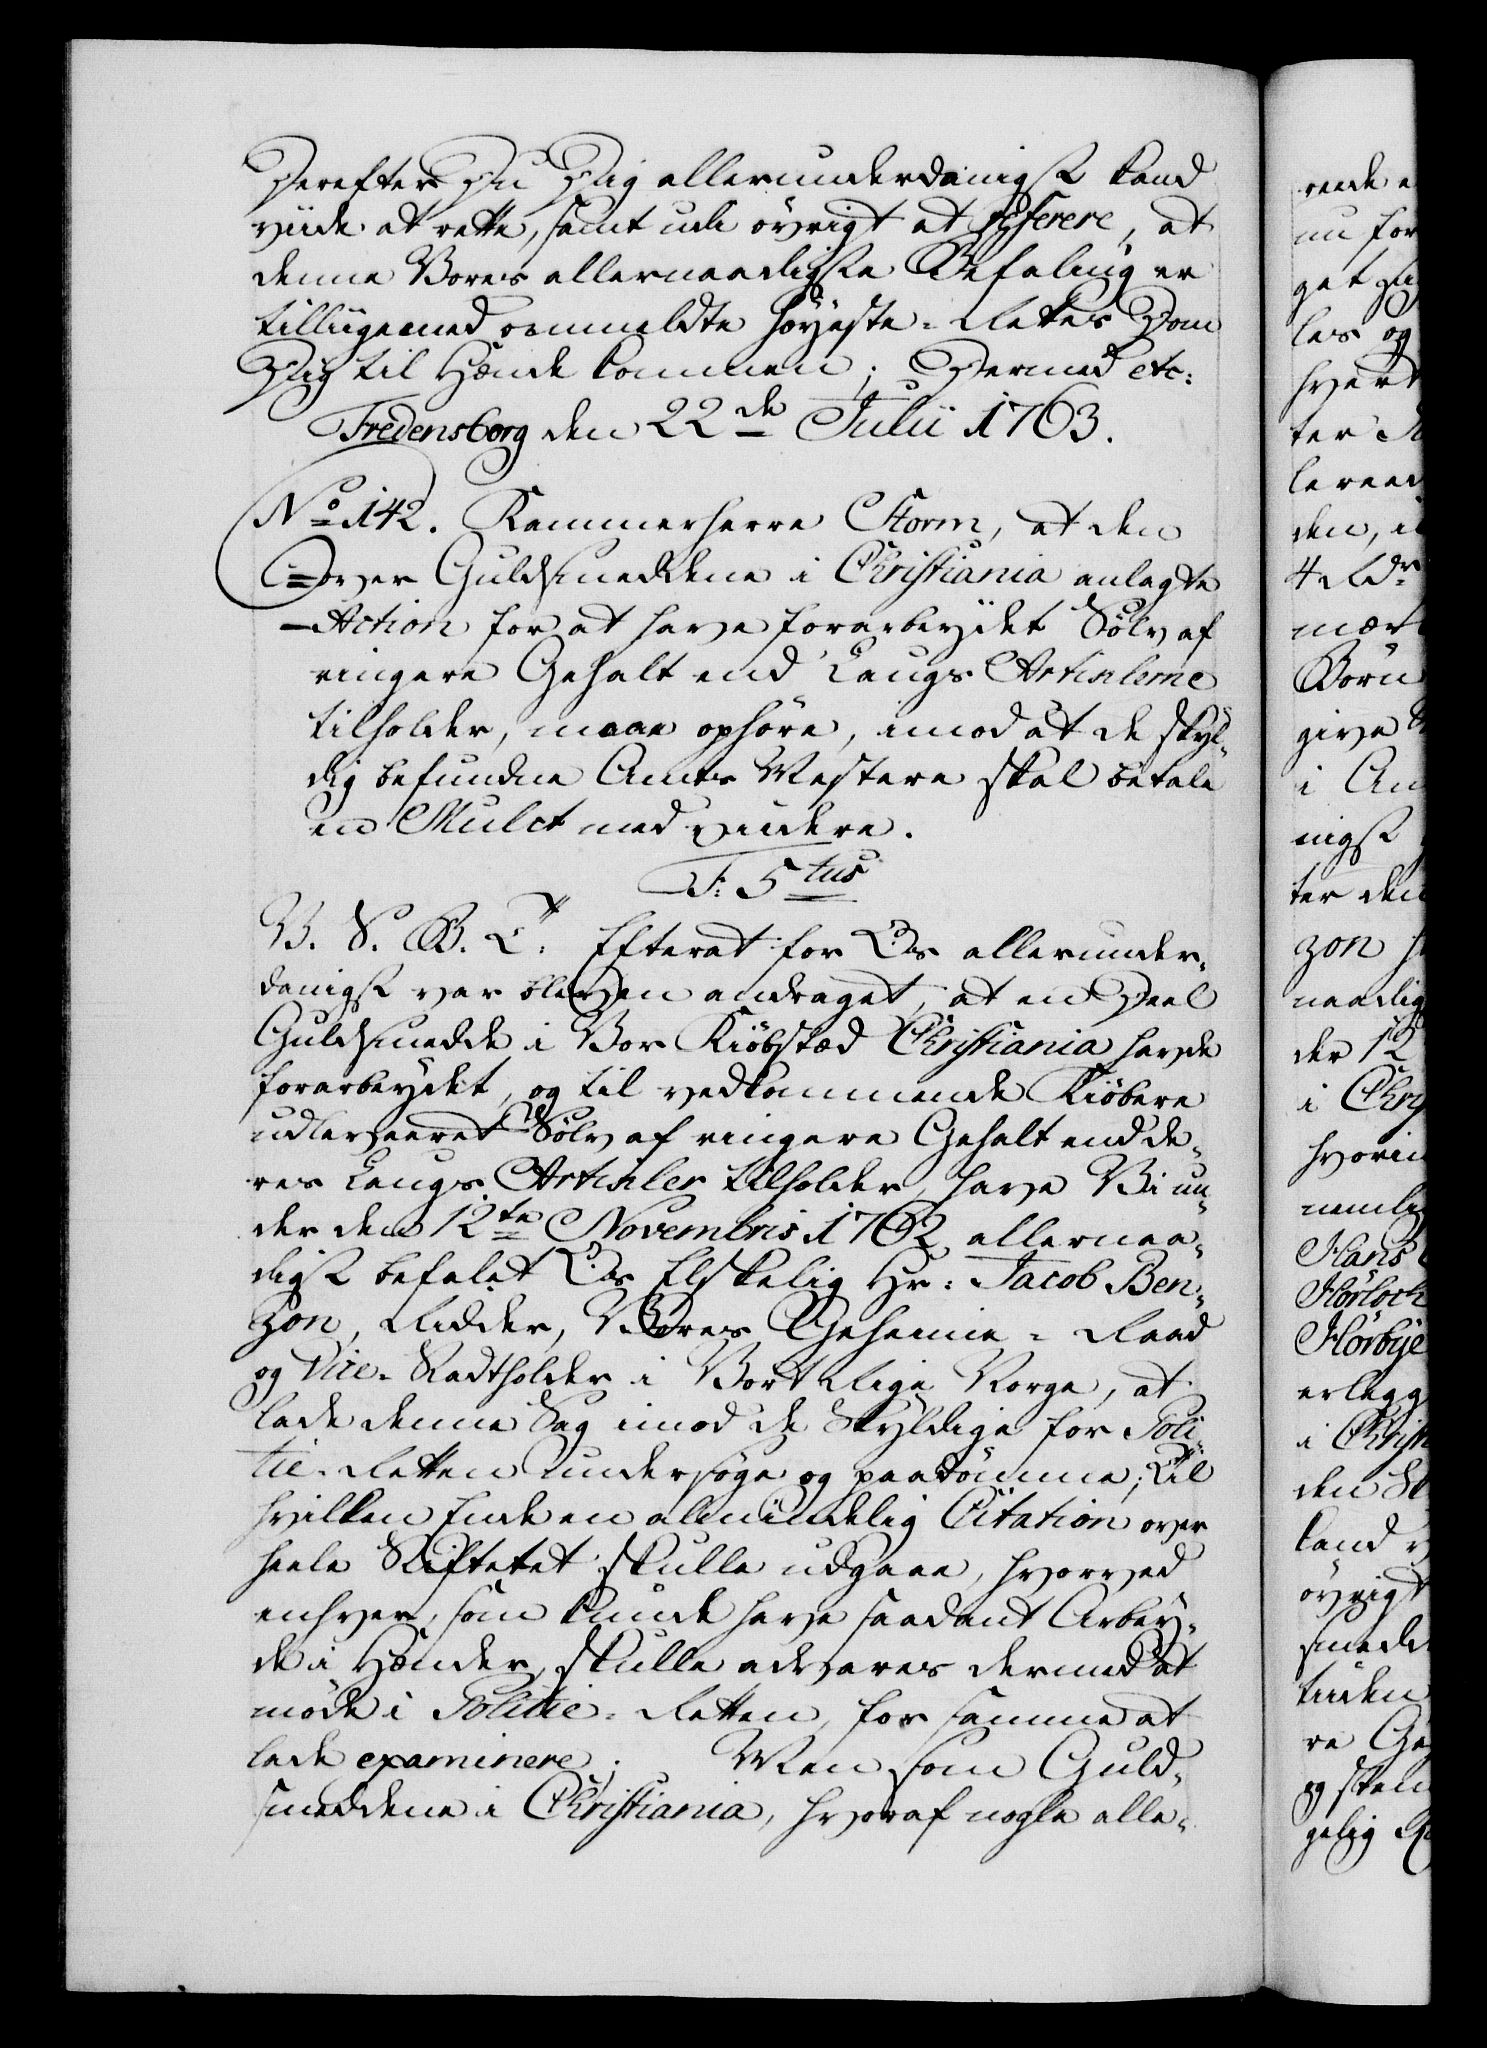 Derefter Du Dig allerunderdanigst kand
viide at rette, samt udi øvrigt at referere, at
denne Vores allernaadigste Befaling er
tilliigemed ommeldte Høyeste-Rettes Dom
Dig til Hænde kommen; Dermed etc:
Fredensborg den 22de Julii 1763.
No 142. Kammerherre Storm, at den
over Guldsmeddene i Christiania anlagte
Action for at have forarbeydet Sølv af
ringere Gehalt end Laugs Articlerne
tilholder, maae ophøre, imod at de skyl-
dig befundne Amts Mestere skal betale
en Mulct med viidere.
F: 5tus
V. S. G. T. Efterat for Os allerunder-
danigst var bleven andraget, at en Deel
Guldsmedde i Vor Kiøbstæd Christiania havde
forarbeydet, og til vedkommende Kiøbere
udleveeret Sølv af ringere Gehalt end de-
res Laugs Articler tilholder, have Vi un-
der den 12te Novembris 1762 allernaa-
digst befalet Os Elskelig Hr: Jacob Ben-
zon, Ridder, Vores Geheime-Raad
og Vice-Stadtholder i Vort Rige Norge, at
lade denne Sag imod de Skyldige for Poli-
tie-Retten undersøge og paadømme; Til
hvilken Ende en almindelig Citation over
heele Stiftetet skulle udgaae, hvorved
enhver, som kunde have saadant Arbey-
de i Hænder, skulle advares dermed at
møde i Politie-Retten, for samme at
lade examinere; Men som Guld-
smeddene i Christiania, hvoraf nogle alle-